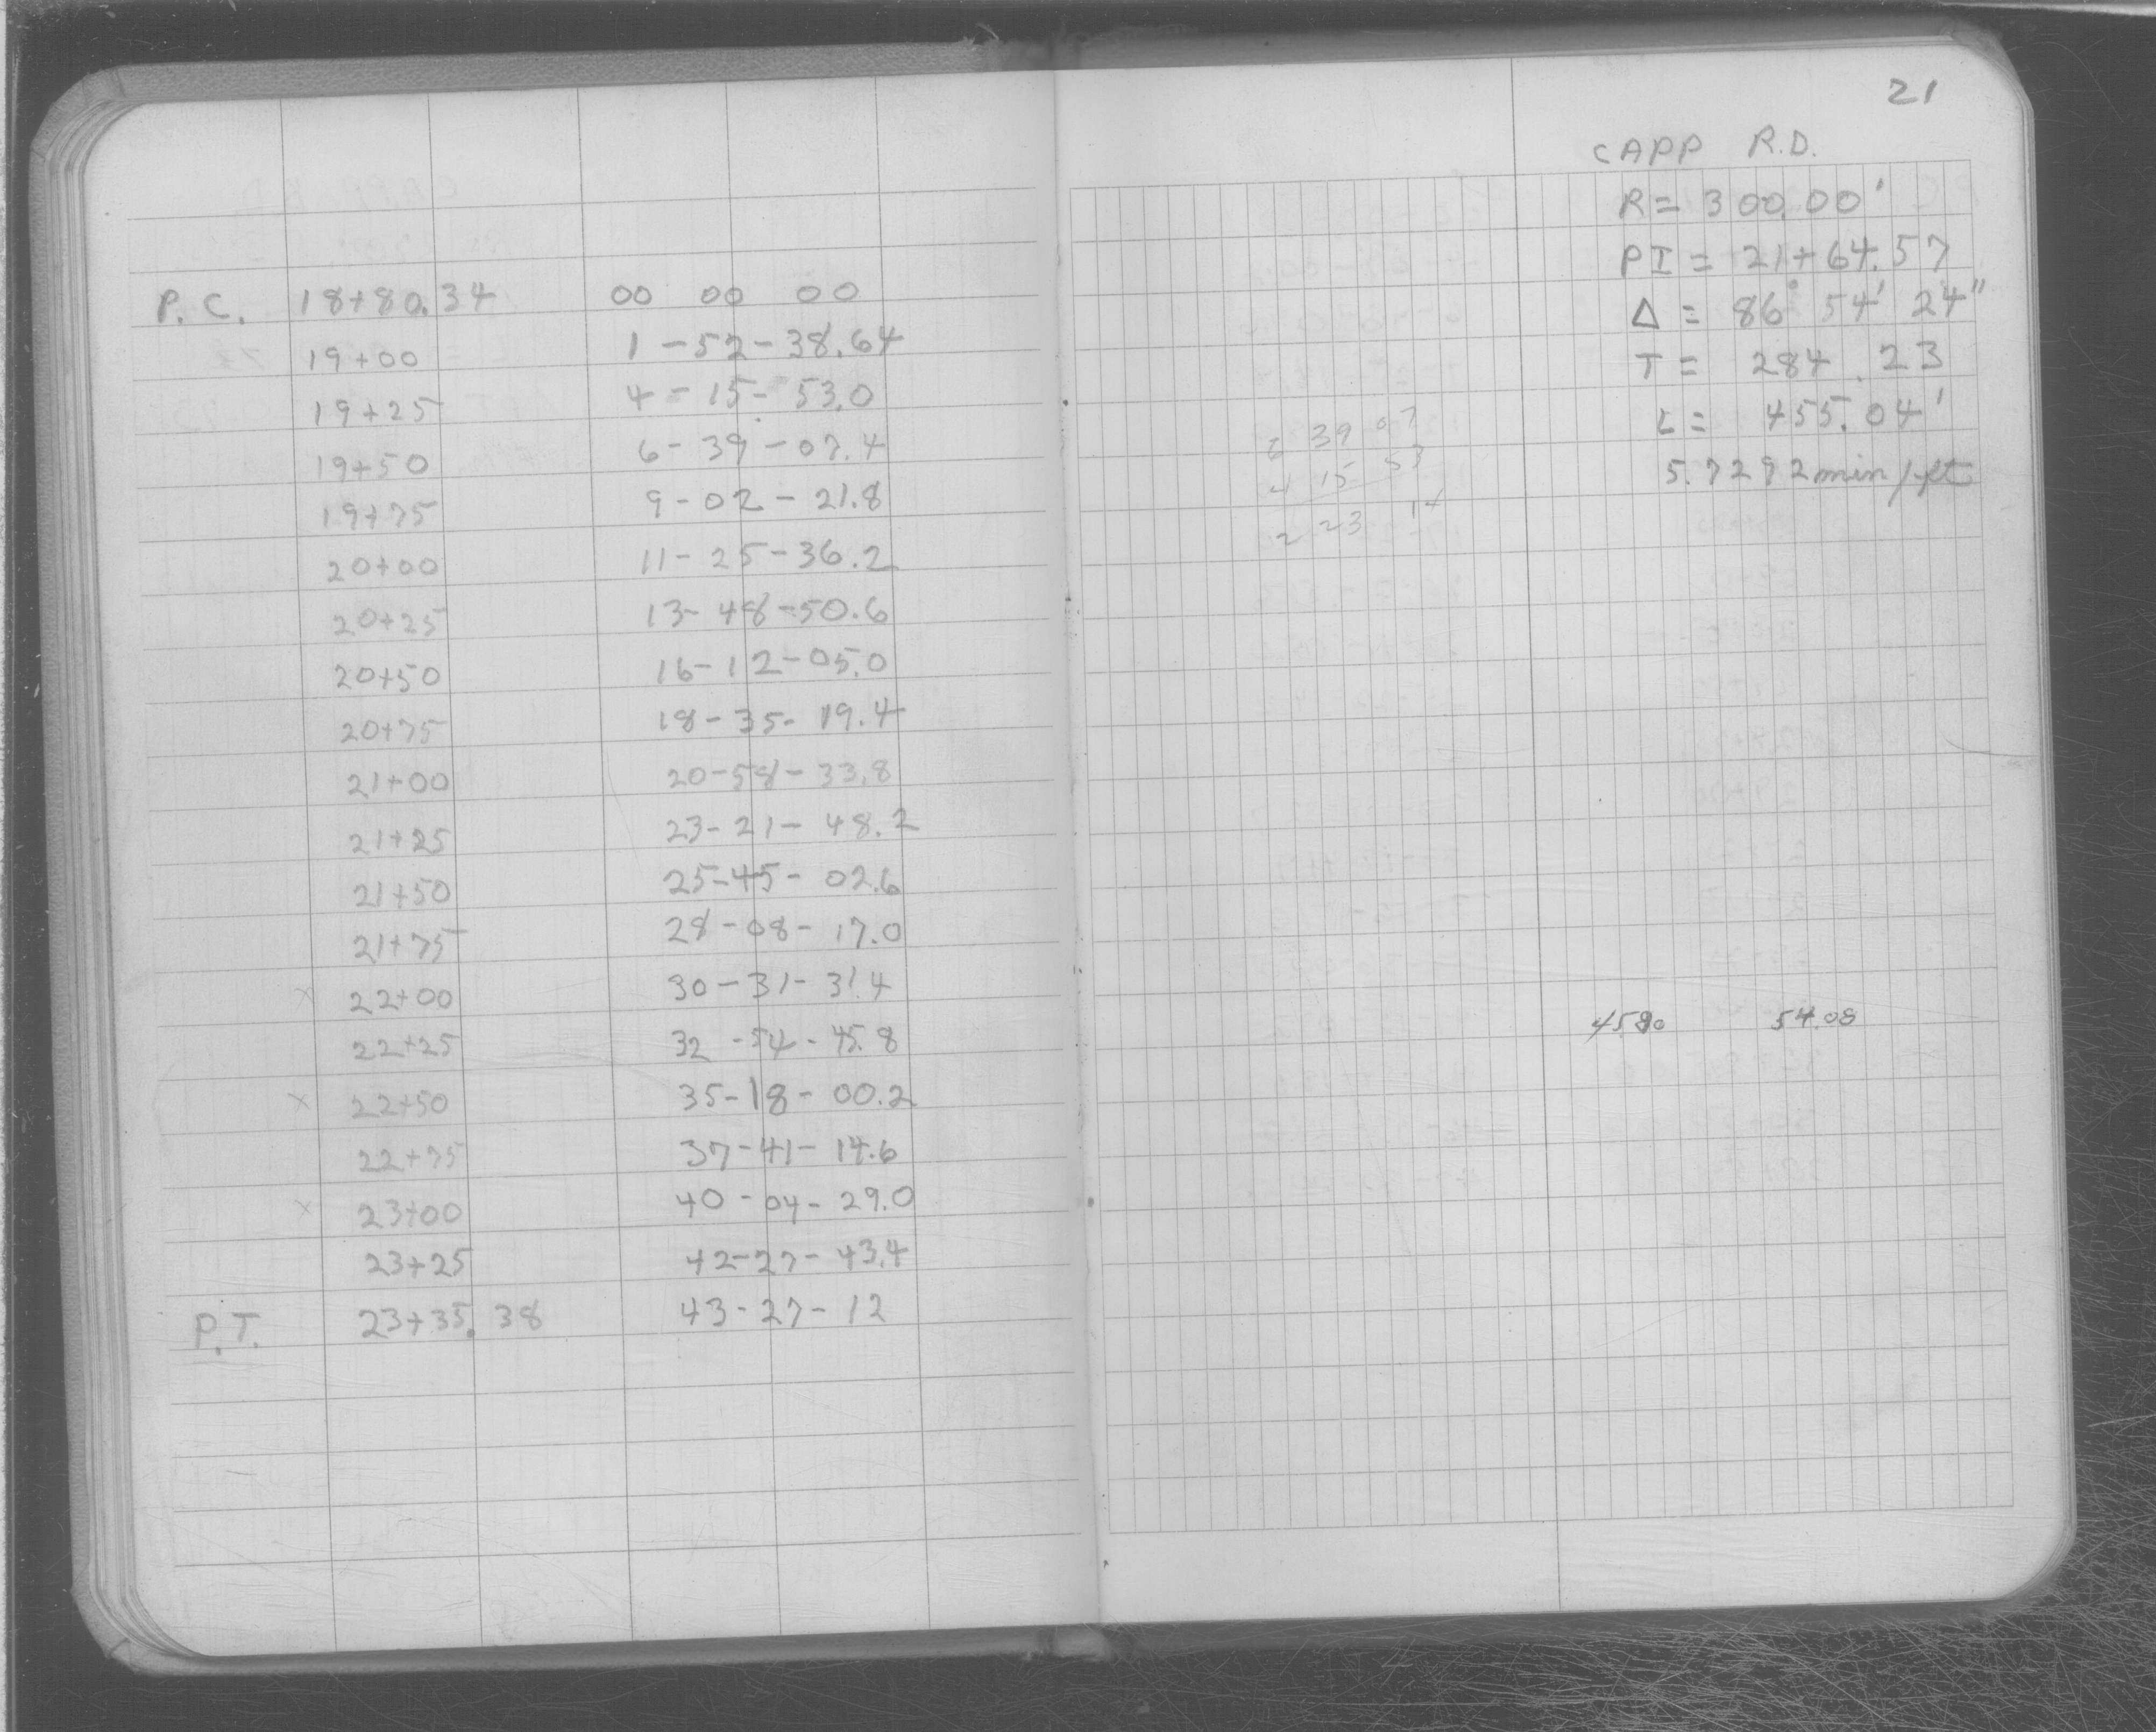 P.C. 18+80.34 00 00 00
19+00 1-52-38.64
19+25 4-15-53.0
19+50 6-39-07.4
19+75 9-02-21.8
20+00 11-25-36.2
20+25 13-48-50.6
20+50 16-12-05.0
20+75 18-35-19.4
21+00 20-58-33.8
21+25 23-21-48.2
21+50 25-45-02.6
21+75 28-08-17.0
x 22+00 30-31-31.4
22+25 32-54-45.8
x 22+50 35-18-00.2
22+75 37-41-14.6
x 23+00 40-04-29.0
23+25 42-27-43.4
P.T. 23+35.38 43-27-12
21
CAPP R.D.
R= 300.00'
PI= 21+64.57
Δ= 86° 54' 24"
T= 284.23
L= 455.04'
5.7292 min/ft
6 39 07
4 15 53
2 23 14
4580 54.08